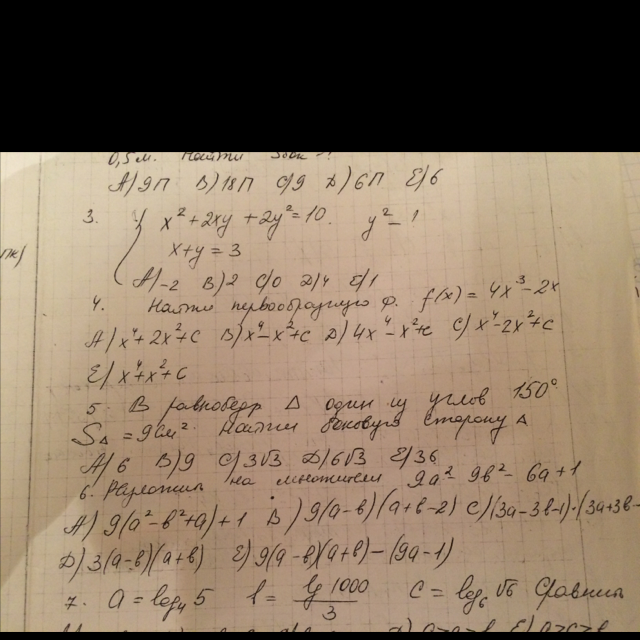 0,5м. Найти Sбок -?
А) 9П В) 18П С) 9 Д) 6П Е) 6
3. { x² + 2xy + 2y² = 10. y² - 1
x + y = 3
А) -2 В) 2 С) 0 Д) 4 Е) 1
4. Найти первообразную ф. f(x) = 4x³ - 2x
А) x⁴ + 2x² + C В) x⁴ - x² + C Д) 4x⁴ - x² + C С) x⁴ - 2x² + C
Е) x⁴ + x² + C
5. В равнобедр Δ один из углов 150°
SΔ = 9см². Найти боковую сторону Δ
А) 6 В) 9 С) 3√3 Д) 6√3 Е) 36
6. Разложить на множители 9a² - 9b² - 6a + 1
А) 9(a² - b² + a) + 1 В) 9(a - b)(a + b - 2) С) (3a - 3b - 1)·(3a + 3b -
Д) 3(a - b)(a + b) Е) 9(a - b)(a + b) - (9a - 1)
7. a = log₄ 5 b = lg 1000 / 3 c = log₆ √6 Сравнить